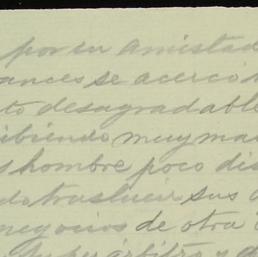 por su amistad
ances se acercó
to desagradable
ibiendo muy ma
s hombre poco dis
do traslucir sus
negocios de otra
Super árbitro y